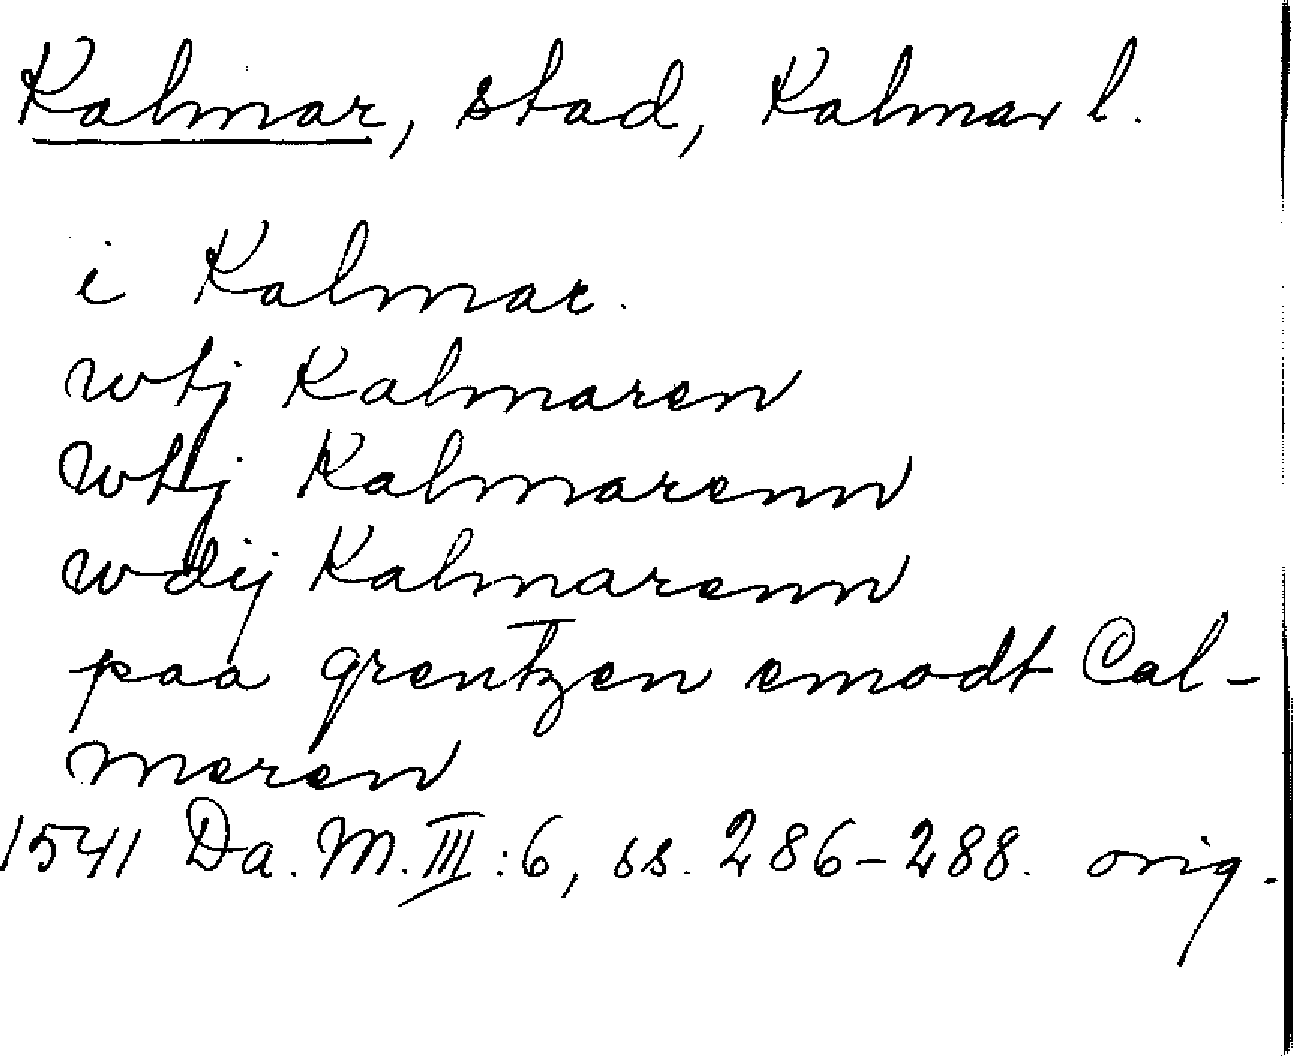 Kalmar, stad, Kalmar l.
i Kalmar.
wtj Kalmaren
wtij Kalmarenn
wdij Kalmarenn
paa grentzen emodt Cal-
meren
1541 Da. M. III:6, ss. 286-288. orig.